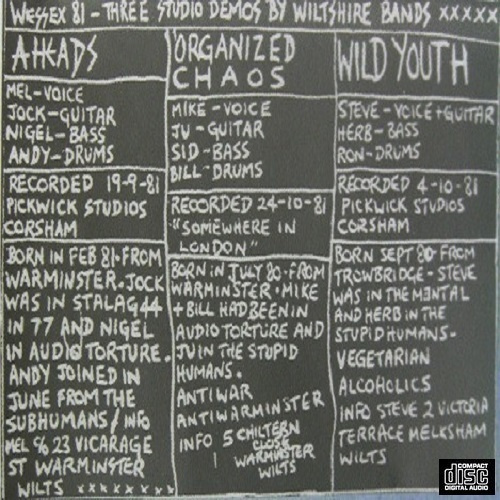 WESSEX 81 - THREE STUDIO DEMOS BY WILTSHIRE BANDS XXXXX
A-HEADS
MEL-VOICE
JOCK-GUITAR
NIGEL-BASS
ANDY-DRUMS
RECORDED 19-9-81
PICKWICK STUDIOS
CORSHAM
BORN IN FEB 81-FROM
WARMINSTER. JOCK
WAS IN STALAG 44
IN 77 AND NIGEL
IN AUDIO TORTURE.
ANDY JOINED IN
JUNE FROM THE
SUBHUMANS/INFO
MEL % 23 VICARAGE
ST WARMINSTER
WILTS XXXXXXXX
ORGANIZED
CHAOS
MIKE-VOICE
JU-GUITAR
SID-BASS
BILL-DRUMS
RECORDED 24-10-81
"SOMEWHERE IN
LONDON"
BORN IN JULY 80-FROM
WARMINSTER. MIKE
+ BILL HAD BEEN IN
AUDIO TORTURE AND
JU IN THE STUPID
HUMANS.
ANTIWAR
ANTIWARMINSTER
INFO 5 CHILTERN
CLOSE
WARMINSTER
WILTS
WILD YOUTH
STEVE-VOICE+GUITAR
HERB-BASS
RON-DRUMS
RECORDED 4-10-81
PICKWICK STUDIOS
CORSHAM
BORN SEPT 80-FROM
TROWBRIDGE-STEVE
WAS IN THE MENTAL
AND HERB IN THE
STUPID HUMANS-
VEGETARIAN
ALCOHOLICS
INFO STEVE 2 VICTORIA
TERRACE MELKSHAM
WILTS
COMPACT
disc
DIGITAL AUDIO